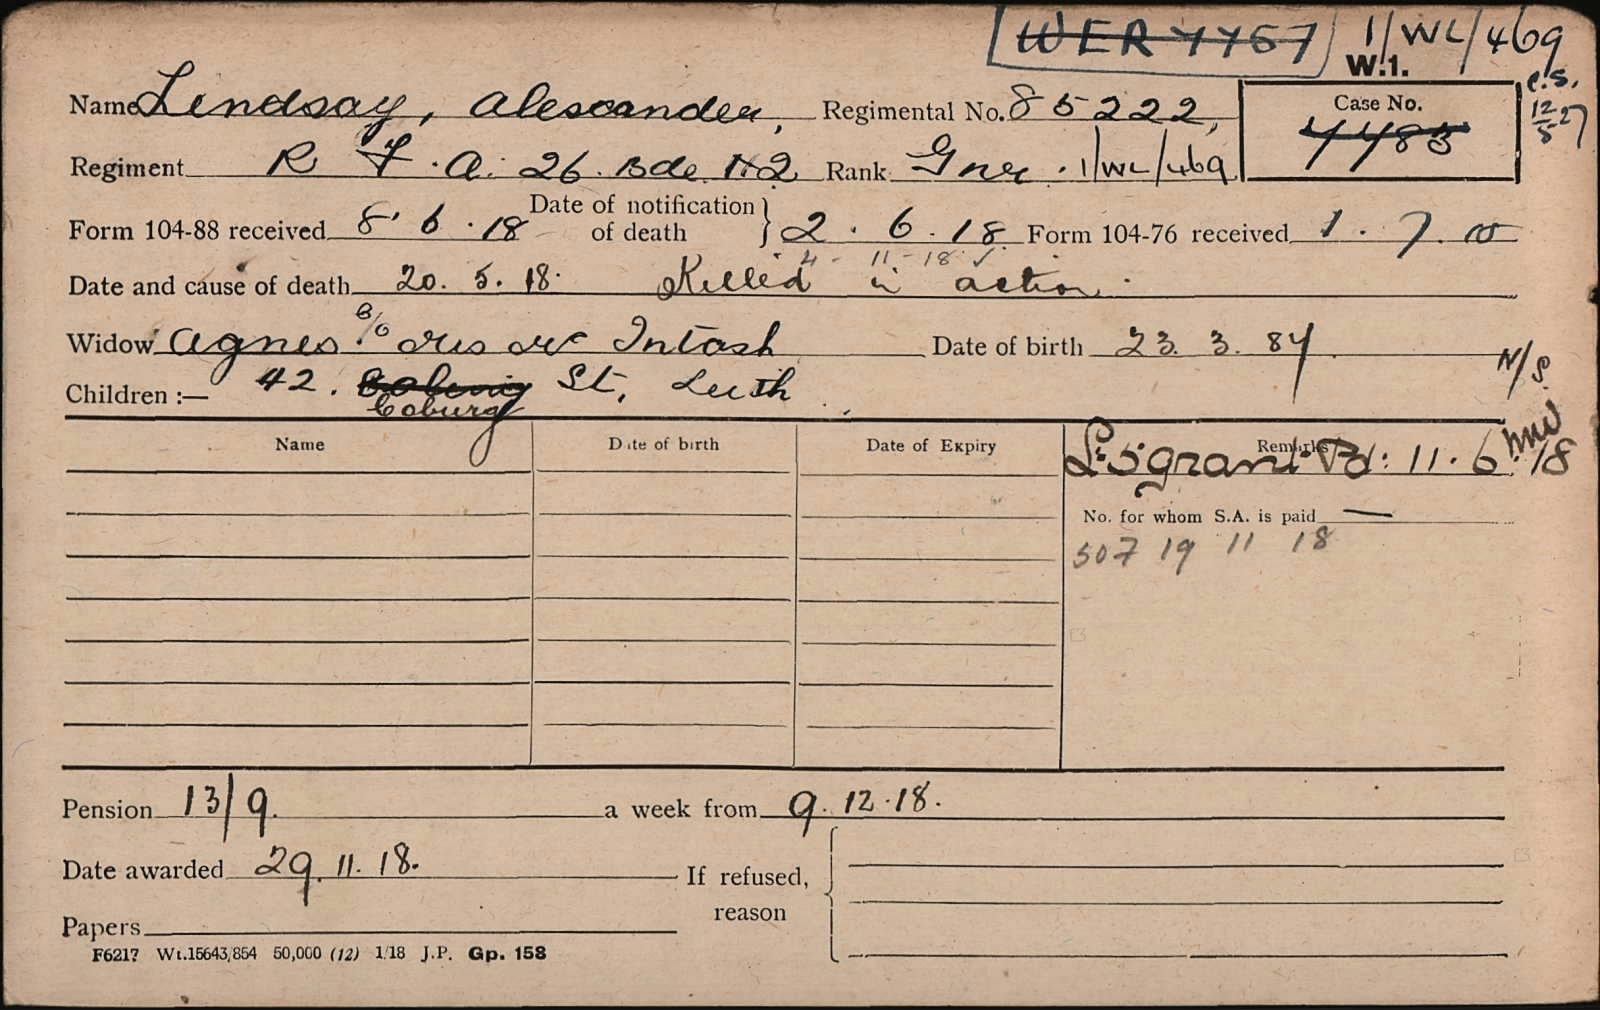 WER 7757 1/WL/469
W.1.
C.S.
12/5 27
Name Lindsay, Alexander, Regimental No. 85222,
Case No.
7483
Regiment R F. A. 26. Bde. Rank Gnr. 1/WL/469
Form 104-88 received 8. 6. 18 Date of notification of death } 2. 6. 18. Form 104-76 received 1. 7.
4 - 11 - 18 ✓
Date and cause of death 20. 5. 18. Killed in action.
Widow Agnes. C/O Mrs Mc Intosh Date of birth 23. 3. 84.
N/S.
Children :— 42. Coburg St, Leith
Name Date of birth Date of Expiry Remarks
£5 grant Pd: 11. 6. 18
No. for whom S.A. is paid —
507 19 11 18
Pension 13/9. a week from 9. 12. 18.
Date awarded 29. 11. 18. If refused, reason
Papers
F6217 Wt.15643/854 50,000 (12) 1/18 J.P. Gp. 158